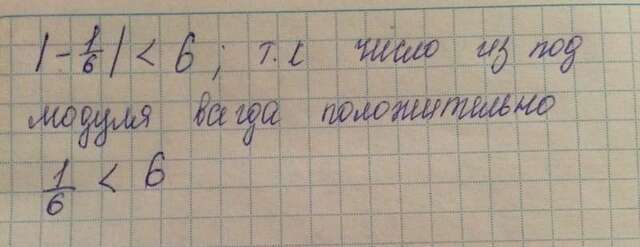 |-1/6| < 6; т.к число из под
модуля всегда положительно
1/6 < 6